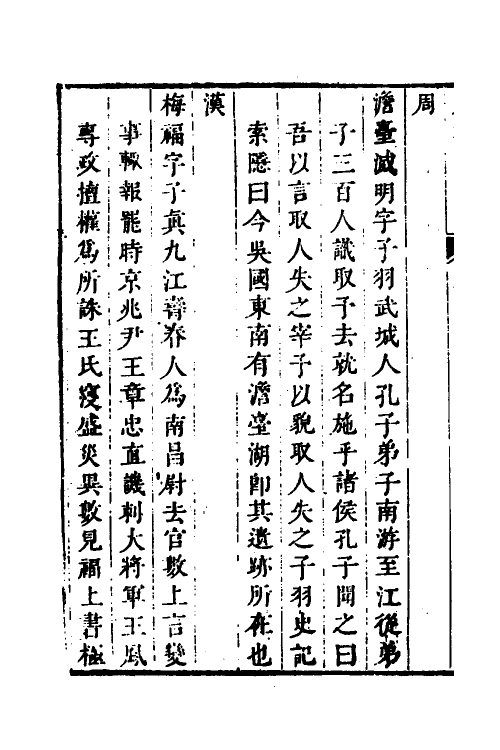 周
澹臺滅明字子羽武城人孔子弟子南游至江從弟
子三百人議取予去就名施乎諸侯孔子聞之曰
吾以言取人失之宰予以貌取人失之子羽史記
索隱曰今吳國東南有澹臺湖即其遺跡所在也
漢
梅福字子真九江壽春人爲南昌尉去官數上言變
事輙報罷時京兆尹王章忠直譏刺大將軍王鳳
專政擅權爲所誅王氏寖盛災異數見福上書極